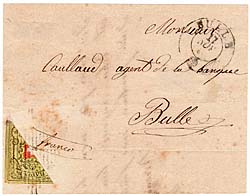 Monsieur
BULLE
17
Caulland agent de la banque
Bulle
franco